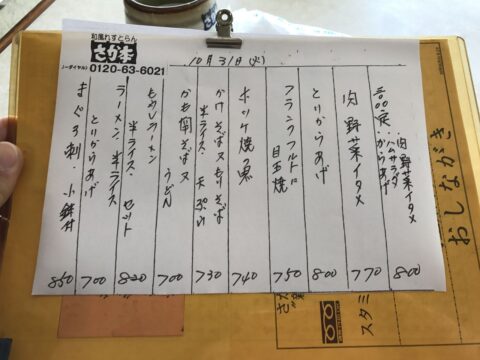 和風れすとらん
さが本
フリーダイヤル 0120-63-6021
10月31日(火)
肉野菜イタメ
ハムサラダ
からあげ
800
肉野菜イタメ
770
とりからあげ
800
フランクフルト
目玉焼
750
ホッケ焼魚
740
かけそば又もりそば
半ライス・天ぷら
730
かも南そば又
うどん
700
もやしラーメン
半ライス・セット
820
ラーメン、半ライス
とりからあげ
700
まぐろ刺・小鉢付
850
おしながき
スタミ